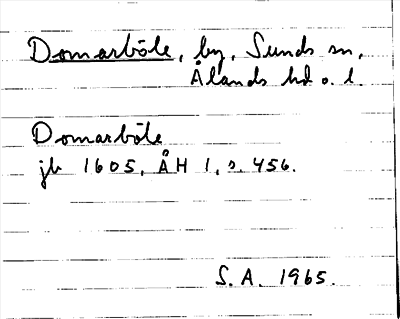 Domarböle, by, Sunds sn,
Ålands hd o. l.
Domarböle
jb 1605, ÅH 1, s. 456.
S. A. 1965.